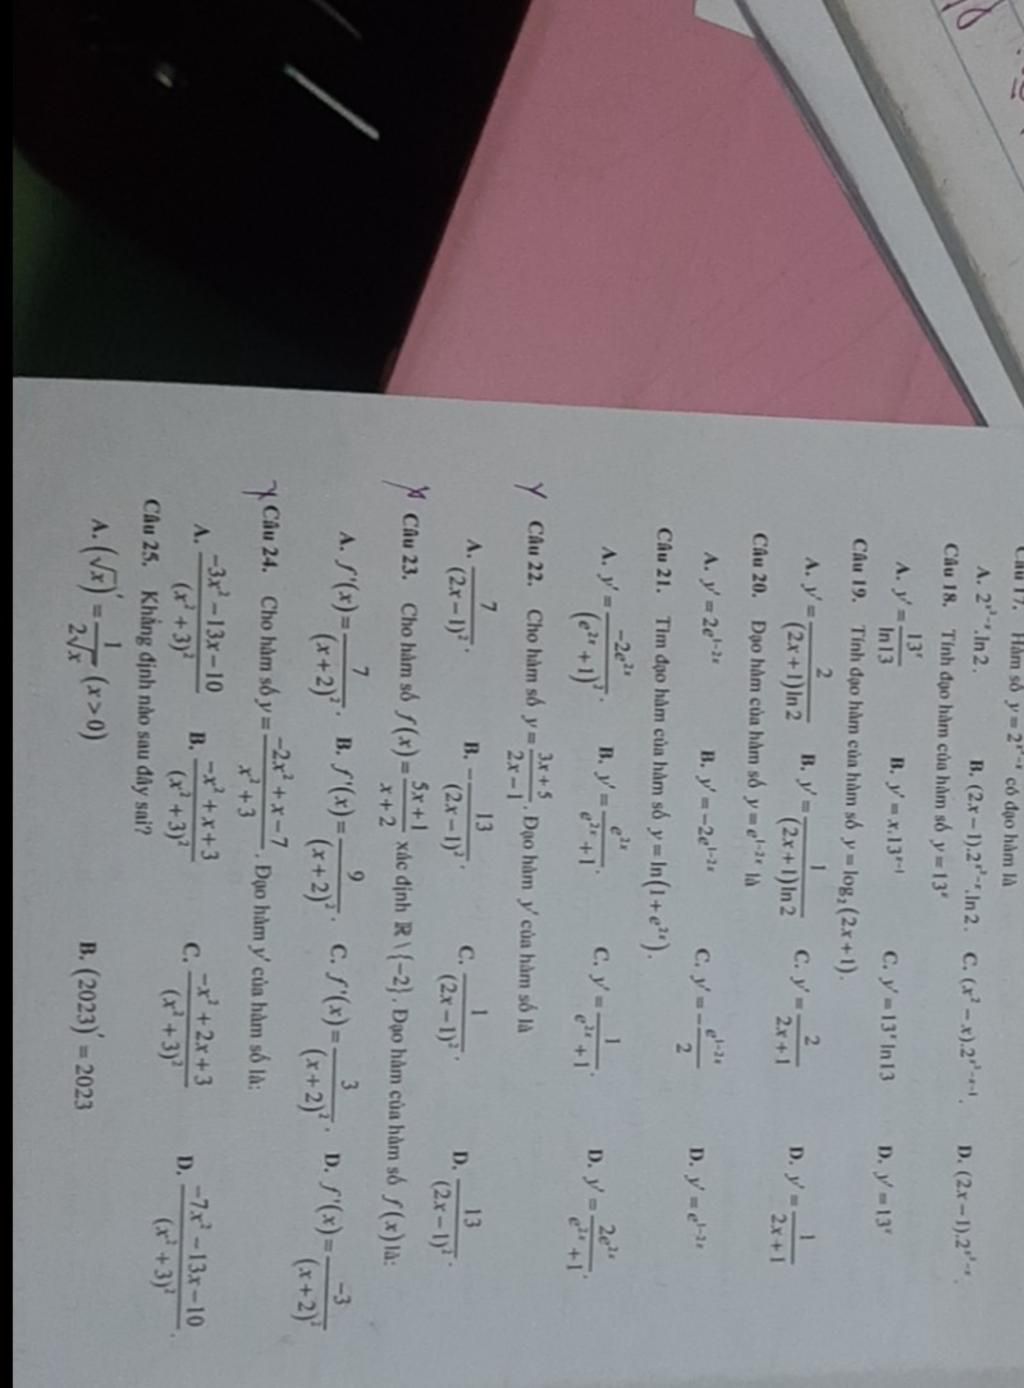 Câu 17. Hàm số y = 2^{x²-x} có đạo hàm là
A. 2^{x²-x}.ln 2. B. (2x-1).2^{x²-x}.ln 2. C. (x²-x).2^{x²-x-1}. D. (2x-1).2^{x²-x}.
Câu 18. Tính đạo hàm của hàm số y = 13^x
A. y' = 13^x/ln13 B. y' = x.13^{x-1} C. y' = 13^x ln13 D. y' = 13^x
Câu 19. Tính đạo hàm của hàm số y = log₂(2x+1).
A. y' = 2/((2x+1)ln2) B. y' = 1/((2x+1)ln2) C. y' = 2/(2x+1) D. y' = 1/(2x+1)
Câu 20. Đạo hàm của hàm số y = e^{1-2x} là
A. y' = 2e^{1-2x} B. y' = -2e^{1-2x} C. y' = -e^{1-2x}/2 D. y' = e^{1-2x}
Câu 21. Tìm đạo hàm của hàm số y = ln(1+e^{2x}).
A. y' = -2e^{2x}/(e^{2x}+1)². B. y' = e^{2x}/(e^{2x}+1). C. y' = 1/(e^{2x}+1). D. y' = 2e^{2x}/(e^{2x}+1).
Câu 22. Cho hàm số y = (3x+5)/(2x-1). Đạo hàm y' của hàm số là
A. 7/(2x-1)². B. -13/(2x-1)². C. 1/(2x-1)². D. 13/(2x-1)².
Câu 23. Cho hàm số f(x) = (5x+1)/(x+2) xác định ℝ\{-2}. Đạo hàm của hàm số f(x) là:
A. f'(x) = 7/(x+2)². B. f'(x) = 9/(x+2)². C. f'(x) = 3/(x+2)². D. f'(x) = -3/(x+2)²
Câu 24. Cho hàm số y = (-2x²+x-7)/(x²+3). Đạo hàm y' của hàm số là:
A. (-3x²-13x-10)/(x²+3)² B. (-x²+x+3)/(x²+3)² C. (-x²+2x+3)/(x²+3)² D. (-7x²-13x-10)/(x²+3)².
Câu 25. Khẳng định nào sau đây sai?
A. (√x)' = 1/(2√x) (x>0) B. (2023)' = 2023